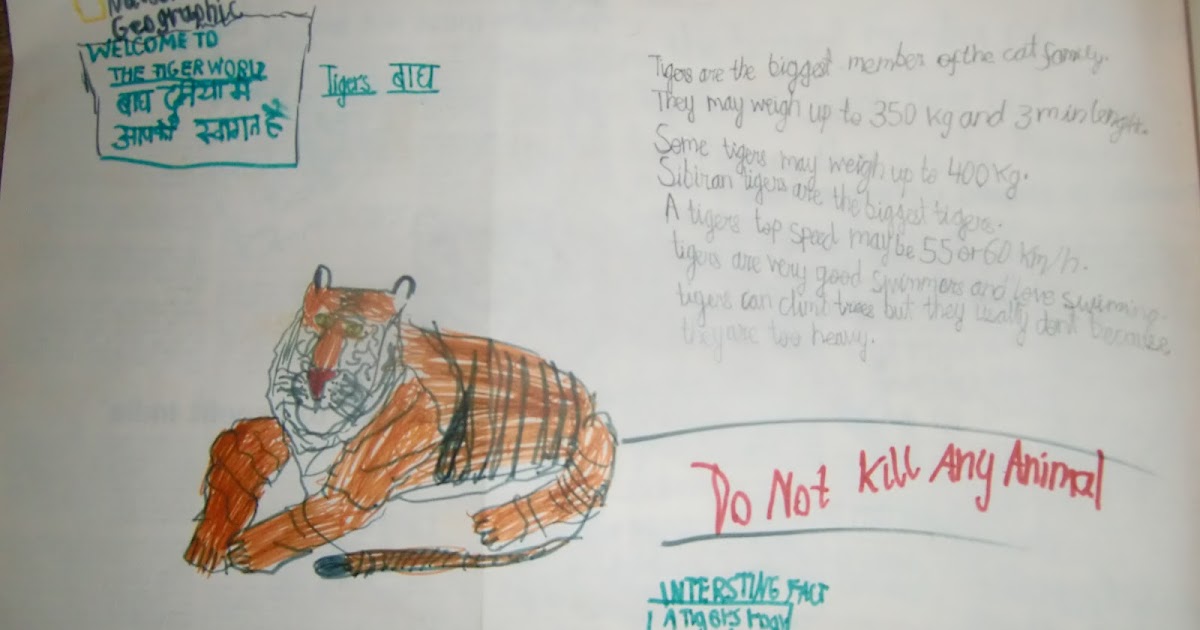 Geographic
WELCOME TO
THE TIGER WORLD
बाघ दुनिया में
आपको स्वागत है
Tigers बाघ
Tigers are the biggest member of the cat family.
They may weigh up to 350 kg and 3 m in lenght.
Some tigers may weigh up to 400 kg.
Sibiran tigers are the biggest tigers.
A tigers top speed may be 55 or 60 km/h.
tigers are very good swimmers and love swimming.
tigers can climb trees but they usally dont because
they are too heavy.
Do Not Kill Any Animal
INTERSTING FACT
1 A Tigers roar